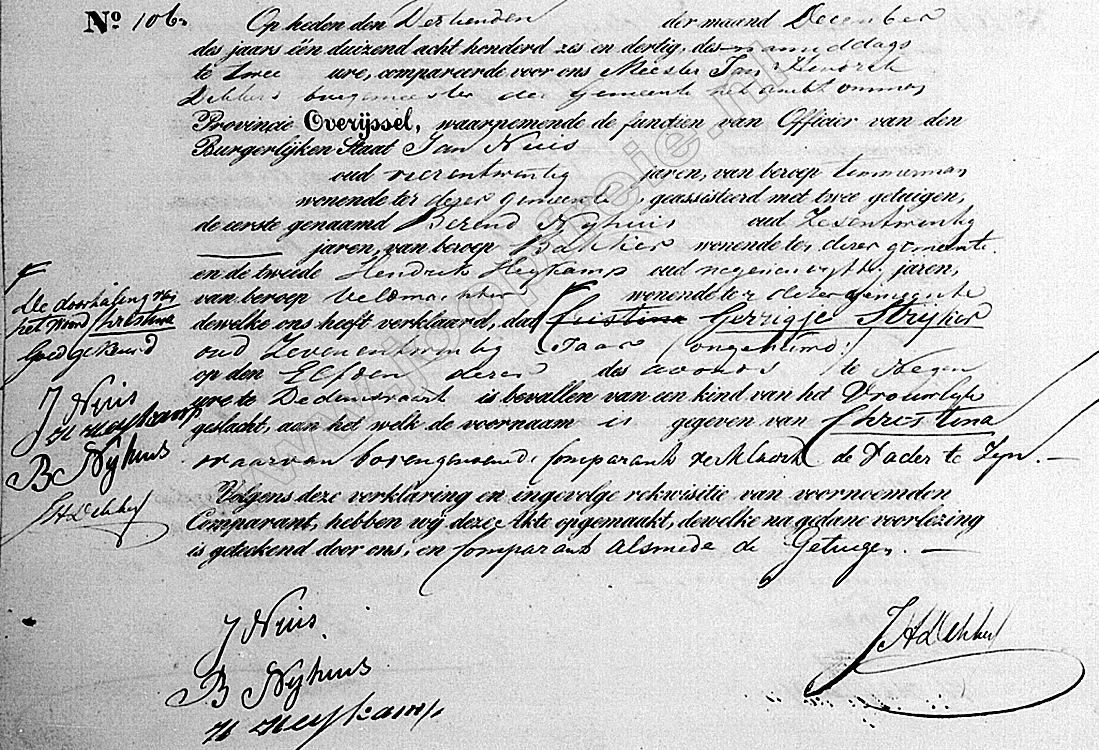 No 106.
Op heden den Dertienden der maand December
des jaars één duizend acht honderd zes en dertig, des namiddags
te twee ure, compareerde voor ons Meester Jan Hendrik
Dekkers burgemeester der Gemeente het ambt ommen
Provincie Overijssel, waarnemende de functien van Officier van den
Burgerlijken Staat Jan Nuis
oud vierentwintig jaren, van beroep timmerman
wonende te dezer gemeente, geassisteerd met twee getuigen,
de eerste genaamd Berend Nyhuis oud Zesentwintig
jaren, van beroep Bakker wonende te dezer gemeente
en de tweede Hendrik Heykamp oud jaren,
van beroep Veldwachter wonende te dezer gemeente
dewelke ons heeft verklaard, dat Cristina Gerrigje Stryker
oud Zevenentwintig Jaar (ongehuwd)
op den Elfden dezer des avonds te Negen
ure te Dedemsvaart is bevallen van een kind van het Vrouwlyk
geslacht, aan het welk de voornaam is gegeven van Christina
waarvan bovengenoemde Comparant verklaard de Vader te Zyn.
Volgens deze verklaring en ingevolge rekwisitie van voornoemden
Comparant, hebben wij deze Akte opgemaakt, dewelke na gedane voorlezing
is geteekend door ons, en Comparant alsmede de Getuigen.
De doorhaling van
het woord Cristina
Goedgekeurd
J Nuis
H Heykamp
B Nyhuis
JHDekker
J Nuis
B Nyhuis
H Heykamp
JHDekker